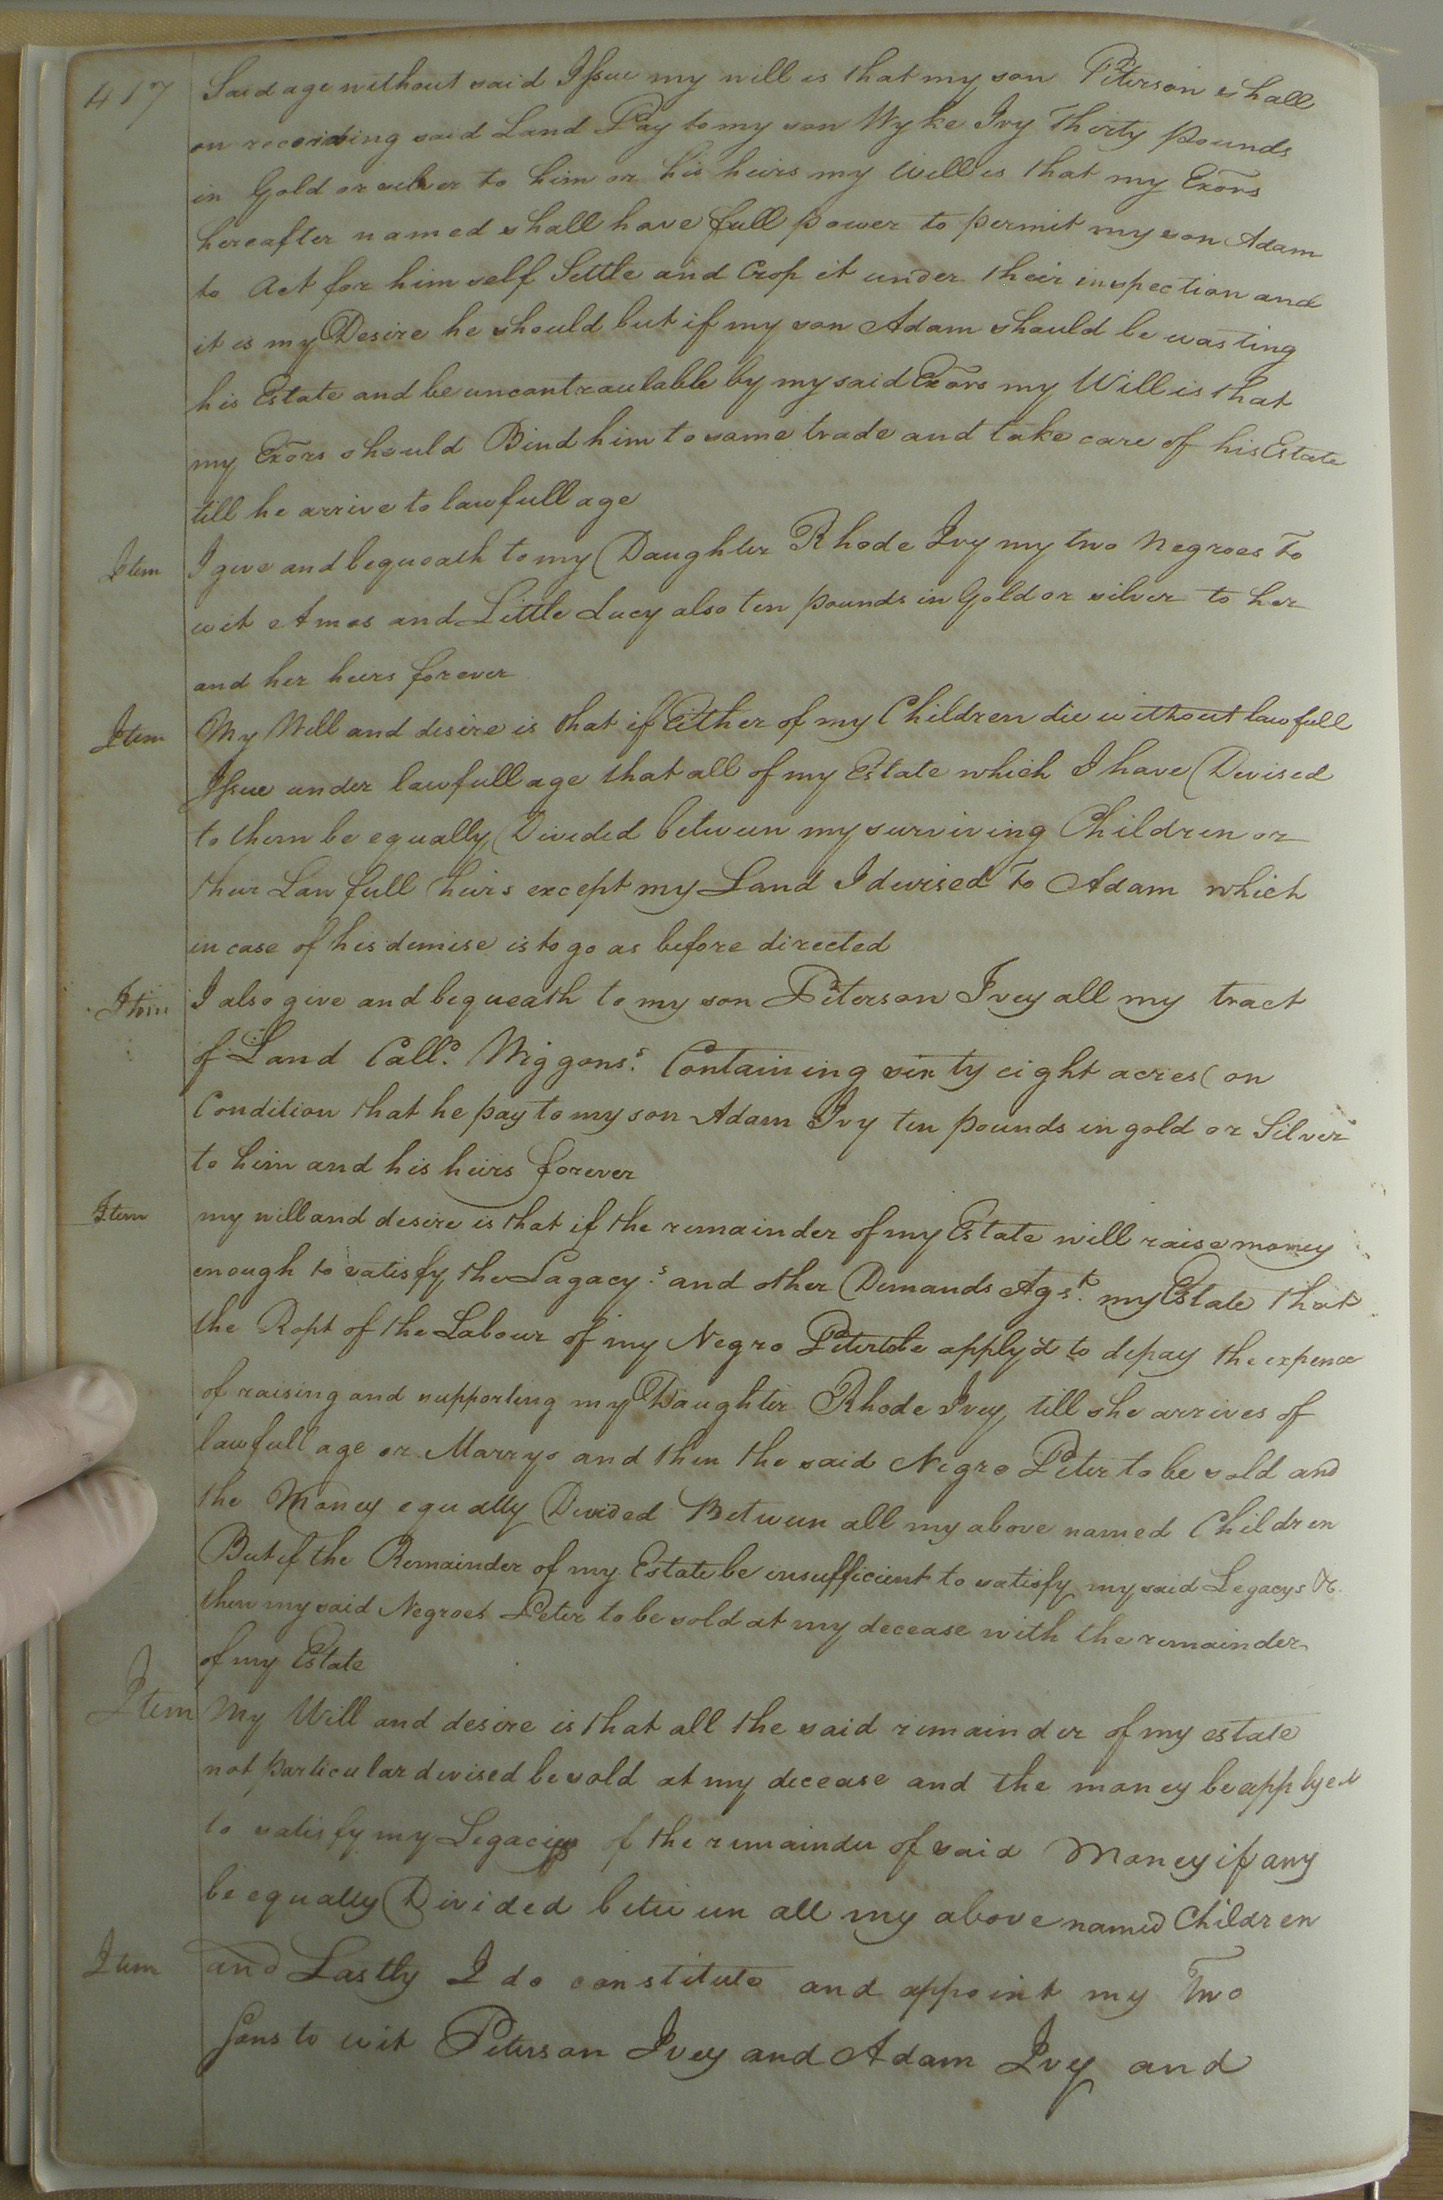 417 Said age without said Issue my will is that my son Peterson shall
on receiving said Land Pay to my son Wyke Ivy Thirty pounds
in Gold or silver to him or his heirs my Will is that my Exors
hereafter named shall have full power to permit my son Adam
to Act for him self Settle and Crop it under their inspection and
it is my Desire he should but if my son Adam should be wasting
his Estate and be uncontraulable by my said Exors my Will is that
my Exors should Bind him to some trade and take care of his Estate
till he arrive to lawfull age
Item I give and bequeath to my Daughter Rhode Ivy my two Negroes To
wit Amos and Little Lucy also ten pounds in Gold or silver to her
and her heirs forever
Item My Will and desire is that if Either of my Children die without lawfull
Issue under lawfull age that all of my Estate which I have Devised
to them be equally Divided between my surviving Children or
their Lawfull heirs except my Land I devised To Adam which
in case of his demise is to go as before directed
Item I also give and bequeath to my son Peterson Ivey all my tract
of Land Calld. Wiggons. Containing sixty eight acres on
Condition that he pay to my son Adam Ivy ten pounds in gold or Silver
to him and his heirs forever
Item my will and desire is that if the remainder of my Estate will raise money
enough to satisfy the Lagacy.s and other Demands Agst. my Estate that
the of the Labour of my Negro Peter be apply'd to depay the expence
of raising and supporting my Daughter Rhode Ivey till she arrives of
lawfull age or Marrys and then the said Negro Peter to be sold and
the Money equally Divided Between all my above named Children
But if the Remainder of my Estate be insufficient to satisfy my said Legacys &c.
then my said Negroes Peter to be sold at my decease with the remainder
of my Estate
Item My Will and desire is that all the said remainder of my estate
not particular devised be sold at my decease and the money be applyed
to satisfy my Legacies of the remainder of said Money if any
be equally Divided between all my above named Children
Item and Lastly I do constitute and appoint my Two
Sons to wit Peterson Ivey and Adam Ivy and